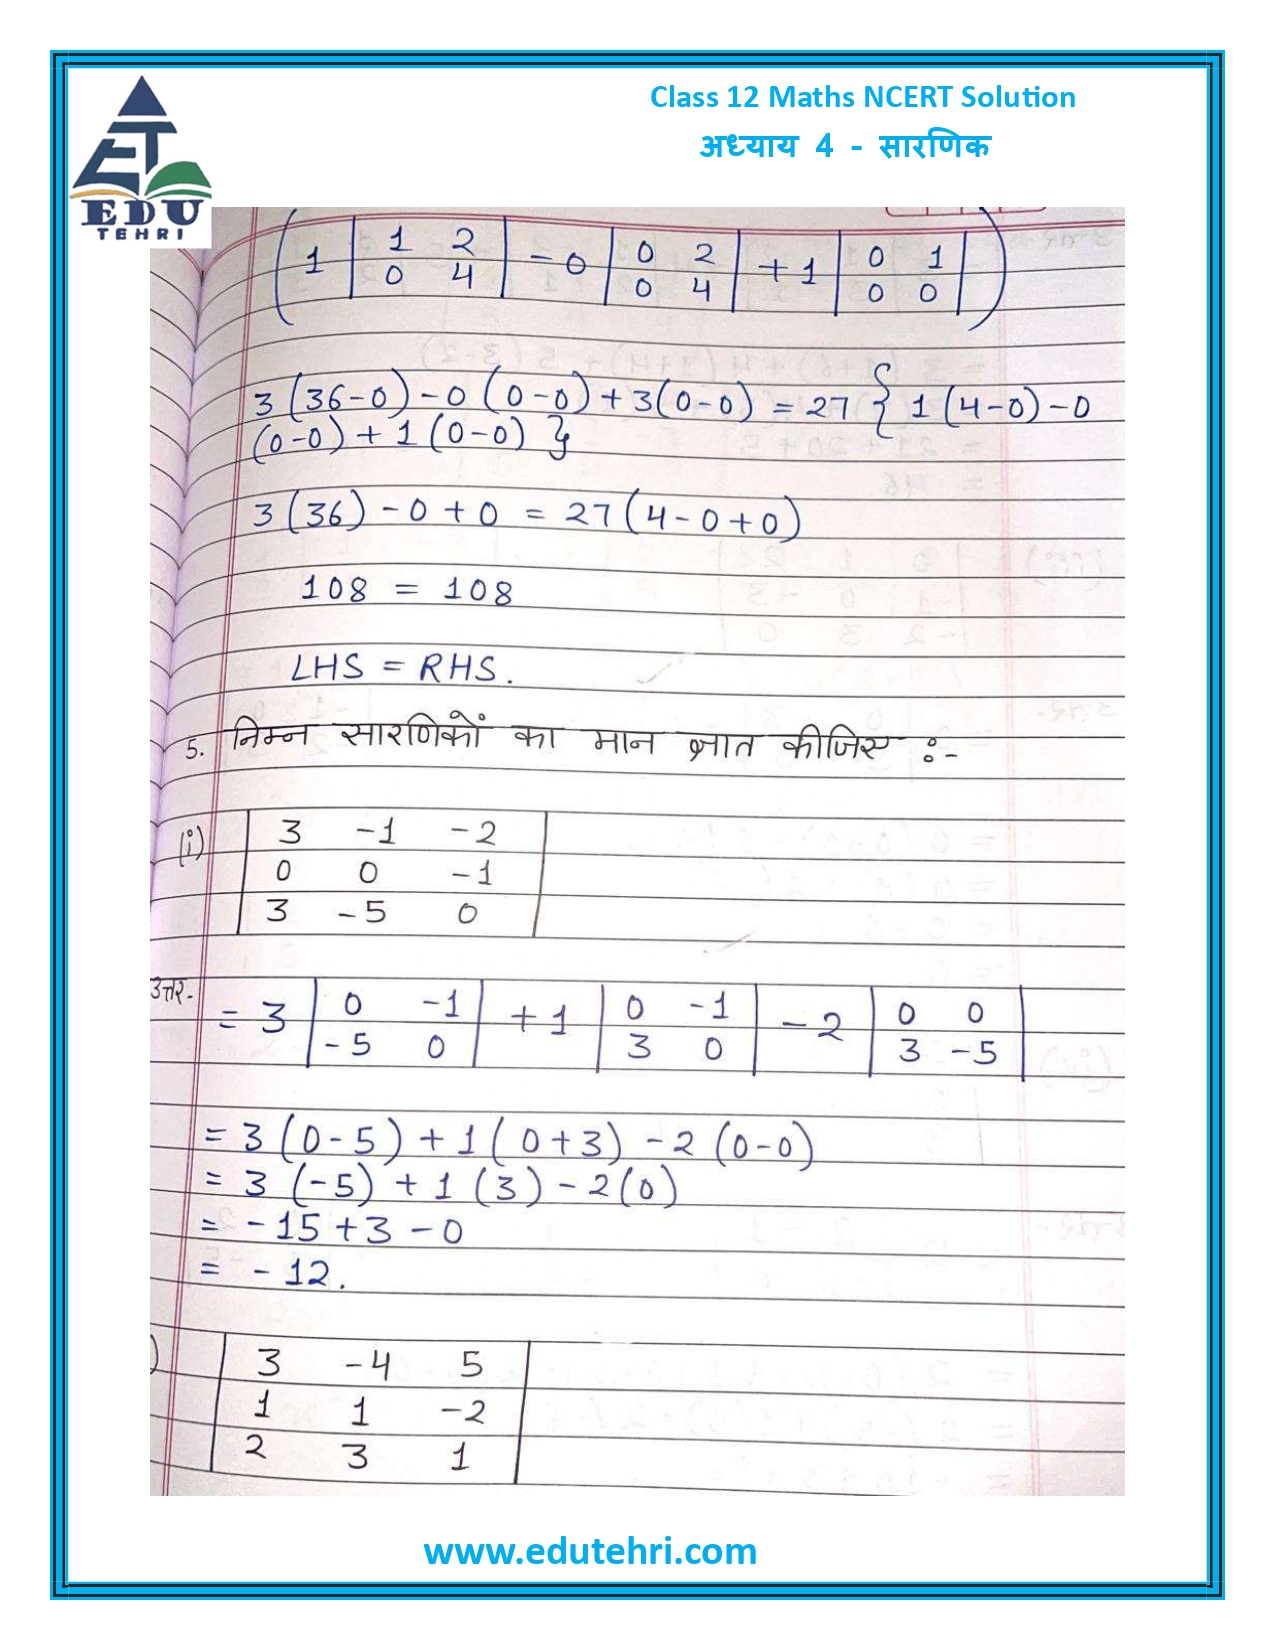 Class 12 Maths NCERT Solution
अध्याय 4 - सारणिक
EDU
TEHRI
( 1 | 1 2 | - 0 | 0 2 | + 1 | 0 1 | )
| 0 4 | | 0 4 | | 0 0 |
3 (36-0) - 0 (0-0) + 3(0-0) = 27 { 1 (4-0) - 0
(0-0) + 1 (0-0) }
3 (36) - 0 + 0 = 27 (4-0+0)
108 = 108
LHS = RHS.
5. निम्न सारणिकों का मान ज्ञात कीजिए :-
(i) | 3 -1 -2 |
| 0 0 -1 |
| 3 -5 0 |
उत्तर- = 3 | 0 -1 | + 1 | 0 -1 | - 2 | 0 0 |
| -5 0 | | 3 0 | | 3 -5 |
= 3 (0-5) + 1 (0+3) - 2 (0-0)
= 3 (-5) + 1 (3) - 2 (0)
= -15 + 3 - 0
= -12.
) | 3 -4 5 |
| 1 1 -2 |
| 2 3 1 |
www.edutehri.com